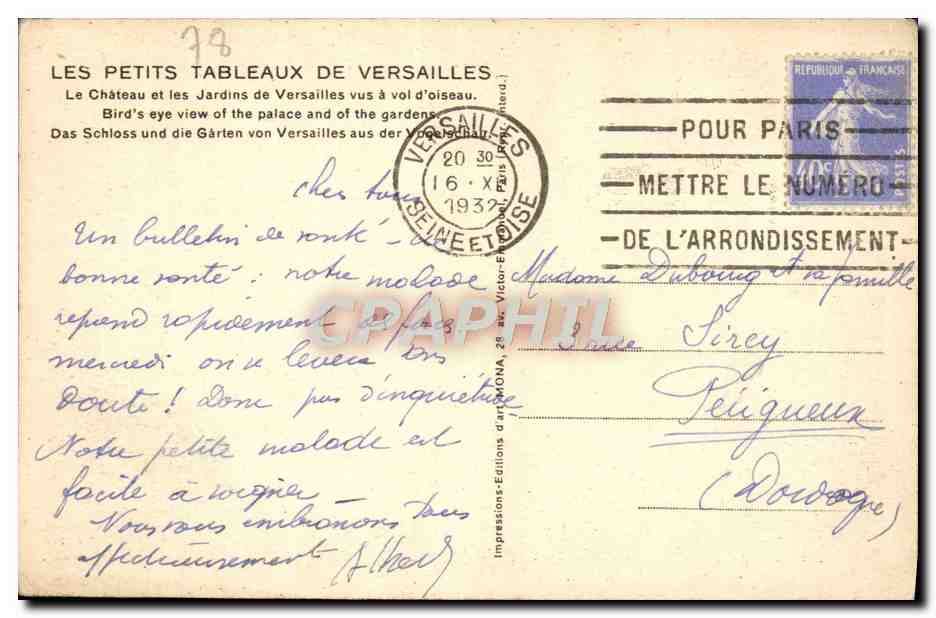 78
LES PETITS TABLEAUX DE VERSAILLES
Le Château et les Jardins de Versailles vus à vol d'oiseau.
Bird's eye view of the palace and of the gardens
Das Schloss und die Gärten von Versailles aus der Vogelschau
VERSAILLES
20 30
16 · XI
1932
SEINE ET OISE
POUR PARIS
METTRE LE NUMÉRO
DE L'ARRONDISSEMENT
REPUBLIQUE FRANÇAISE
40c
POSTES
cher tous
Un bulletin de santé - de
bonne santé : notre malade
reprend rapidement des forces
mercredi on le lèvera sans
doute ! Donc pas d'inquiétude
Notre petite malade est
facile à soigner
Nous vous embrassons tous
affectueusement
Impressions-Editions d'art MONA, 28 av. Victor-Emmanuel, Paris (Rep. interd.)
Madame Dubourg et sa famille
3 rue Sirey
Périgueux
(Dordogne)
CPAPHIL